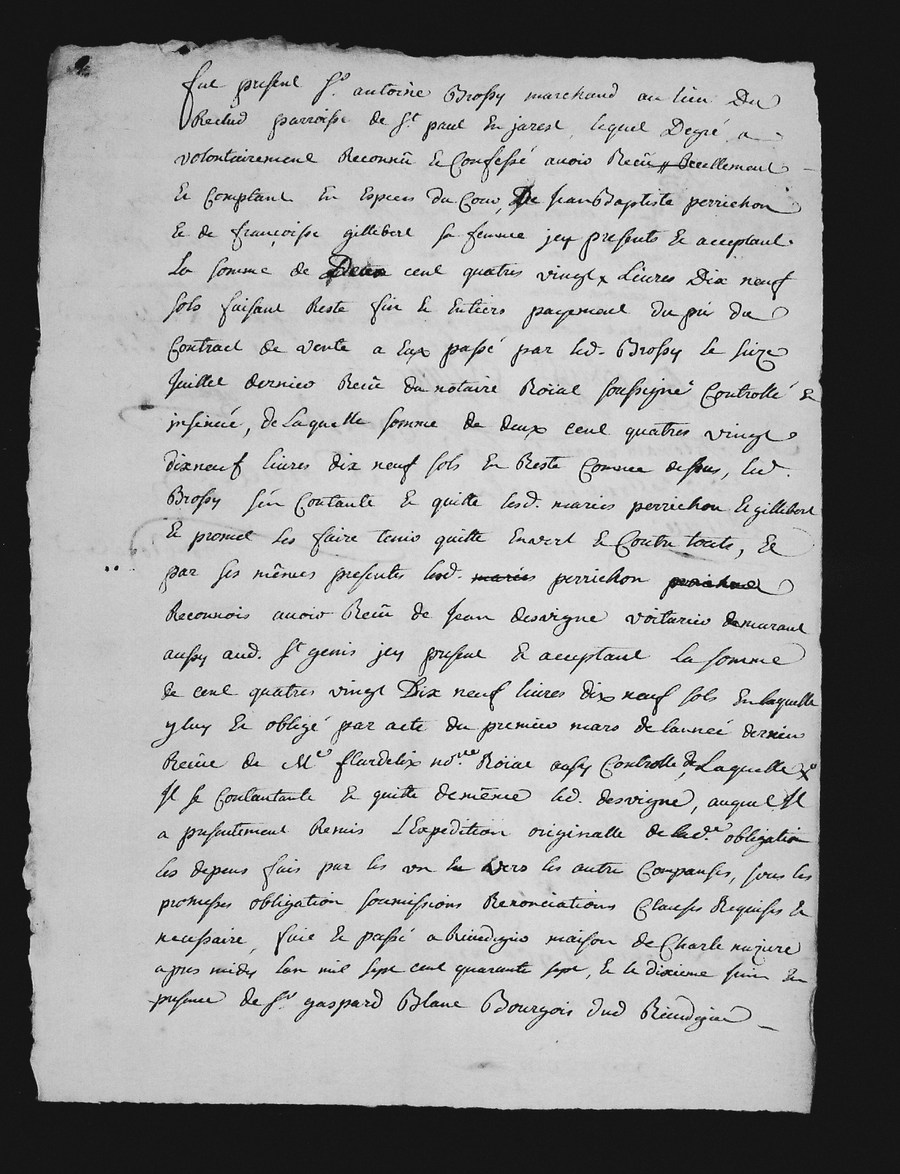 fut present Sr. antoine Brossy marchand au lieu Du
Reclud parroisse de St. paul En jarest, lequel Degré a
volontairement Reconnû Et Confessé avoir Reçû Reellement
Et Comptant En Especes du Cour, De Jean Baptiste perrichon
Et de françoisse gillibert sa femme jcy presents Et acceptant
La somme de Deux cent quatres vingt x Livres Dix neuf
sols faisant Reste fin Et Entiers payement du prix du
Contract de vente a Eux passé par led. Brossy le
Juillet dernier Reçû du notaire Roïal soussigné Controllé Et
insinué, de Laquelle somme de deux cent quatres vingt
dixneuf livres dix neuf sols En Reste Comme dessus, led.
Brossy s'en Contante Et quitte lesd. maries perrichon Et gillibert
Et promet les faire tenir quitte Envert Et Contre toute, Et
par ses mêmes presentes led. maries perrichon perrichon
Reconnois avoir Reçû de Jean desvigne voiturier demurant
aussy aud. St genis jcy present Et acceptant la somme
de cent quatres vingt Dix neuf livres dix neuf sols En laquelle
y luy Et obligé par acte du premier mars de lanneé dernier
Reçüe de Me flurdelix nore. Roïal aussy Controllé de Laquelle xe
Il se Contantante Et quitte demême led. desvigne, auquel Il
a presentement Remis L'Expedition originalle de lade. obligation
les depens fais par les vn En vers les autre Compansés, sous les
promesses obligation soumissions Renonciations Clauses Requises Et
necessaire, fait Et passé a maison de Charle
apres midy Lan mil sept cent quarante sept, Et le dixieme En
presence de Sr. gaspard Blanc Bourgois dud